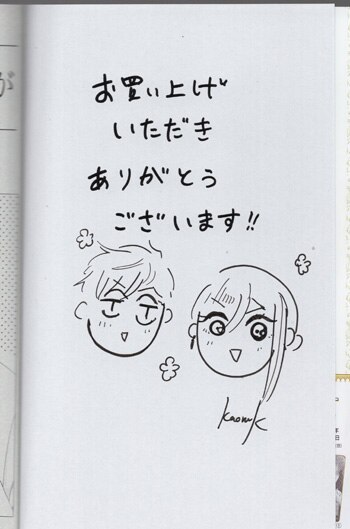 お買い上げ
いただき
ありがとう
ございます!!